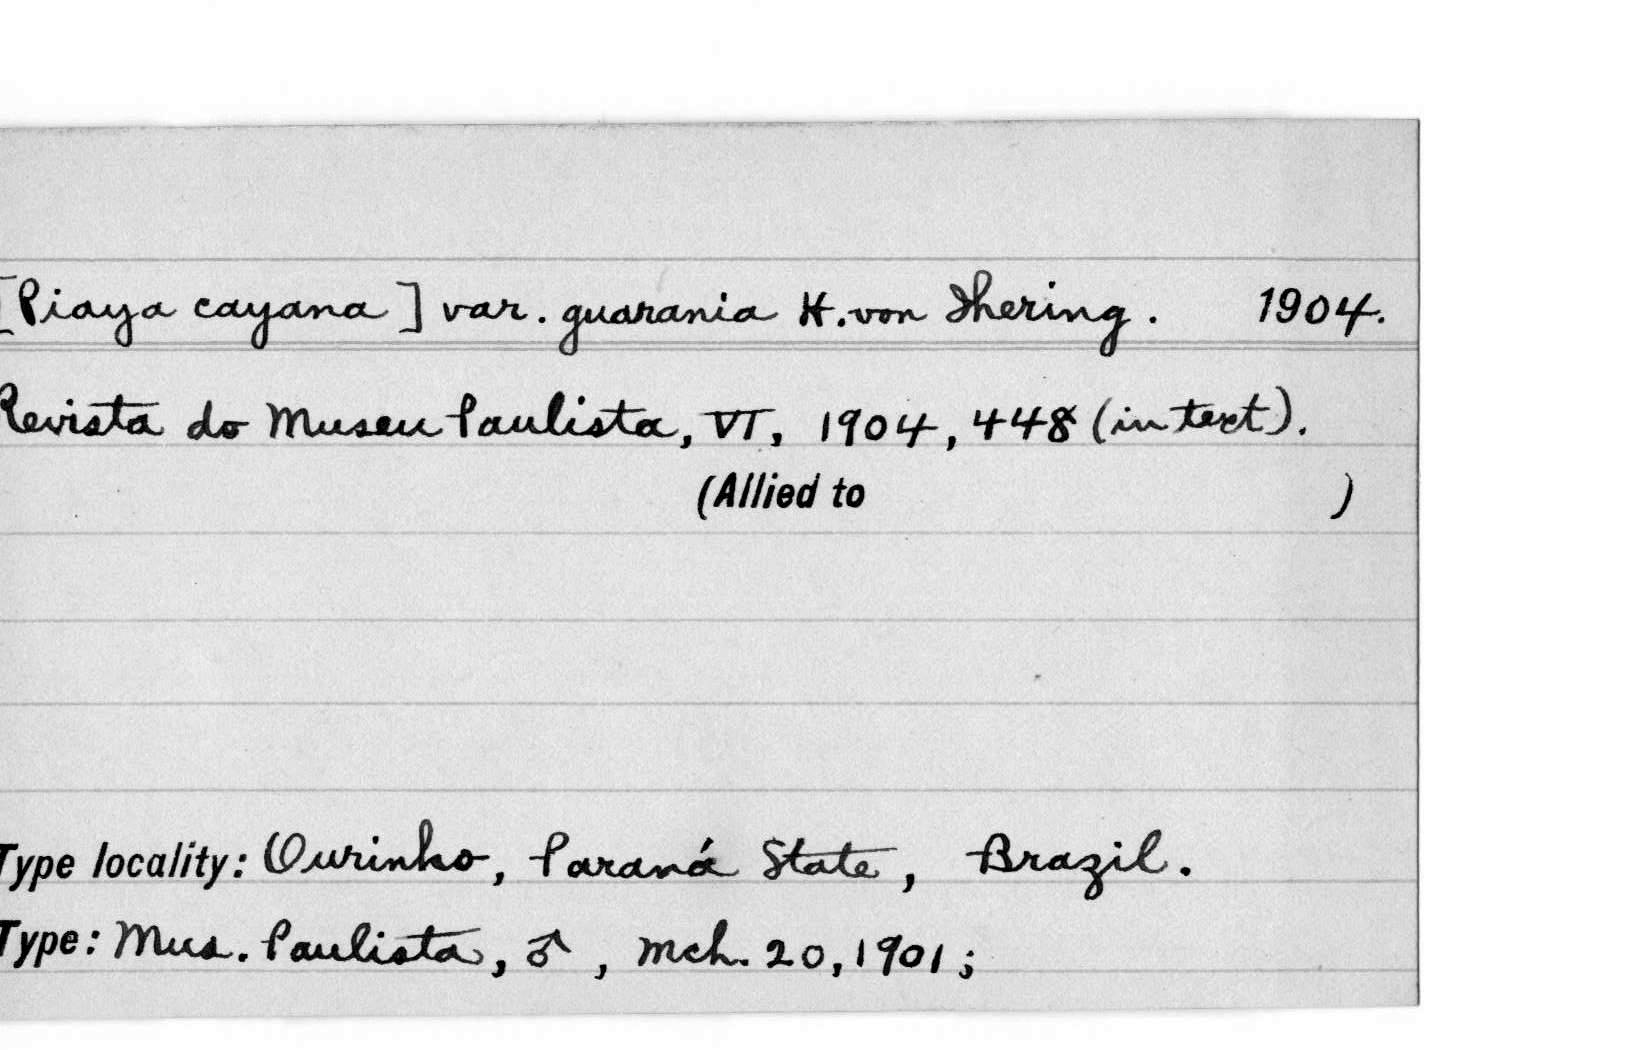 [Piaya cayana] var. guarania H. von Ihering. 1904.
Revista do Museu Paulista, VI, 1904, 448 (in text).
(Allied to )
Type locality: Ourinho, Paraná State, Brazil.
Type: Mus. Paulista, ♂, Mch. 20, 1901;